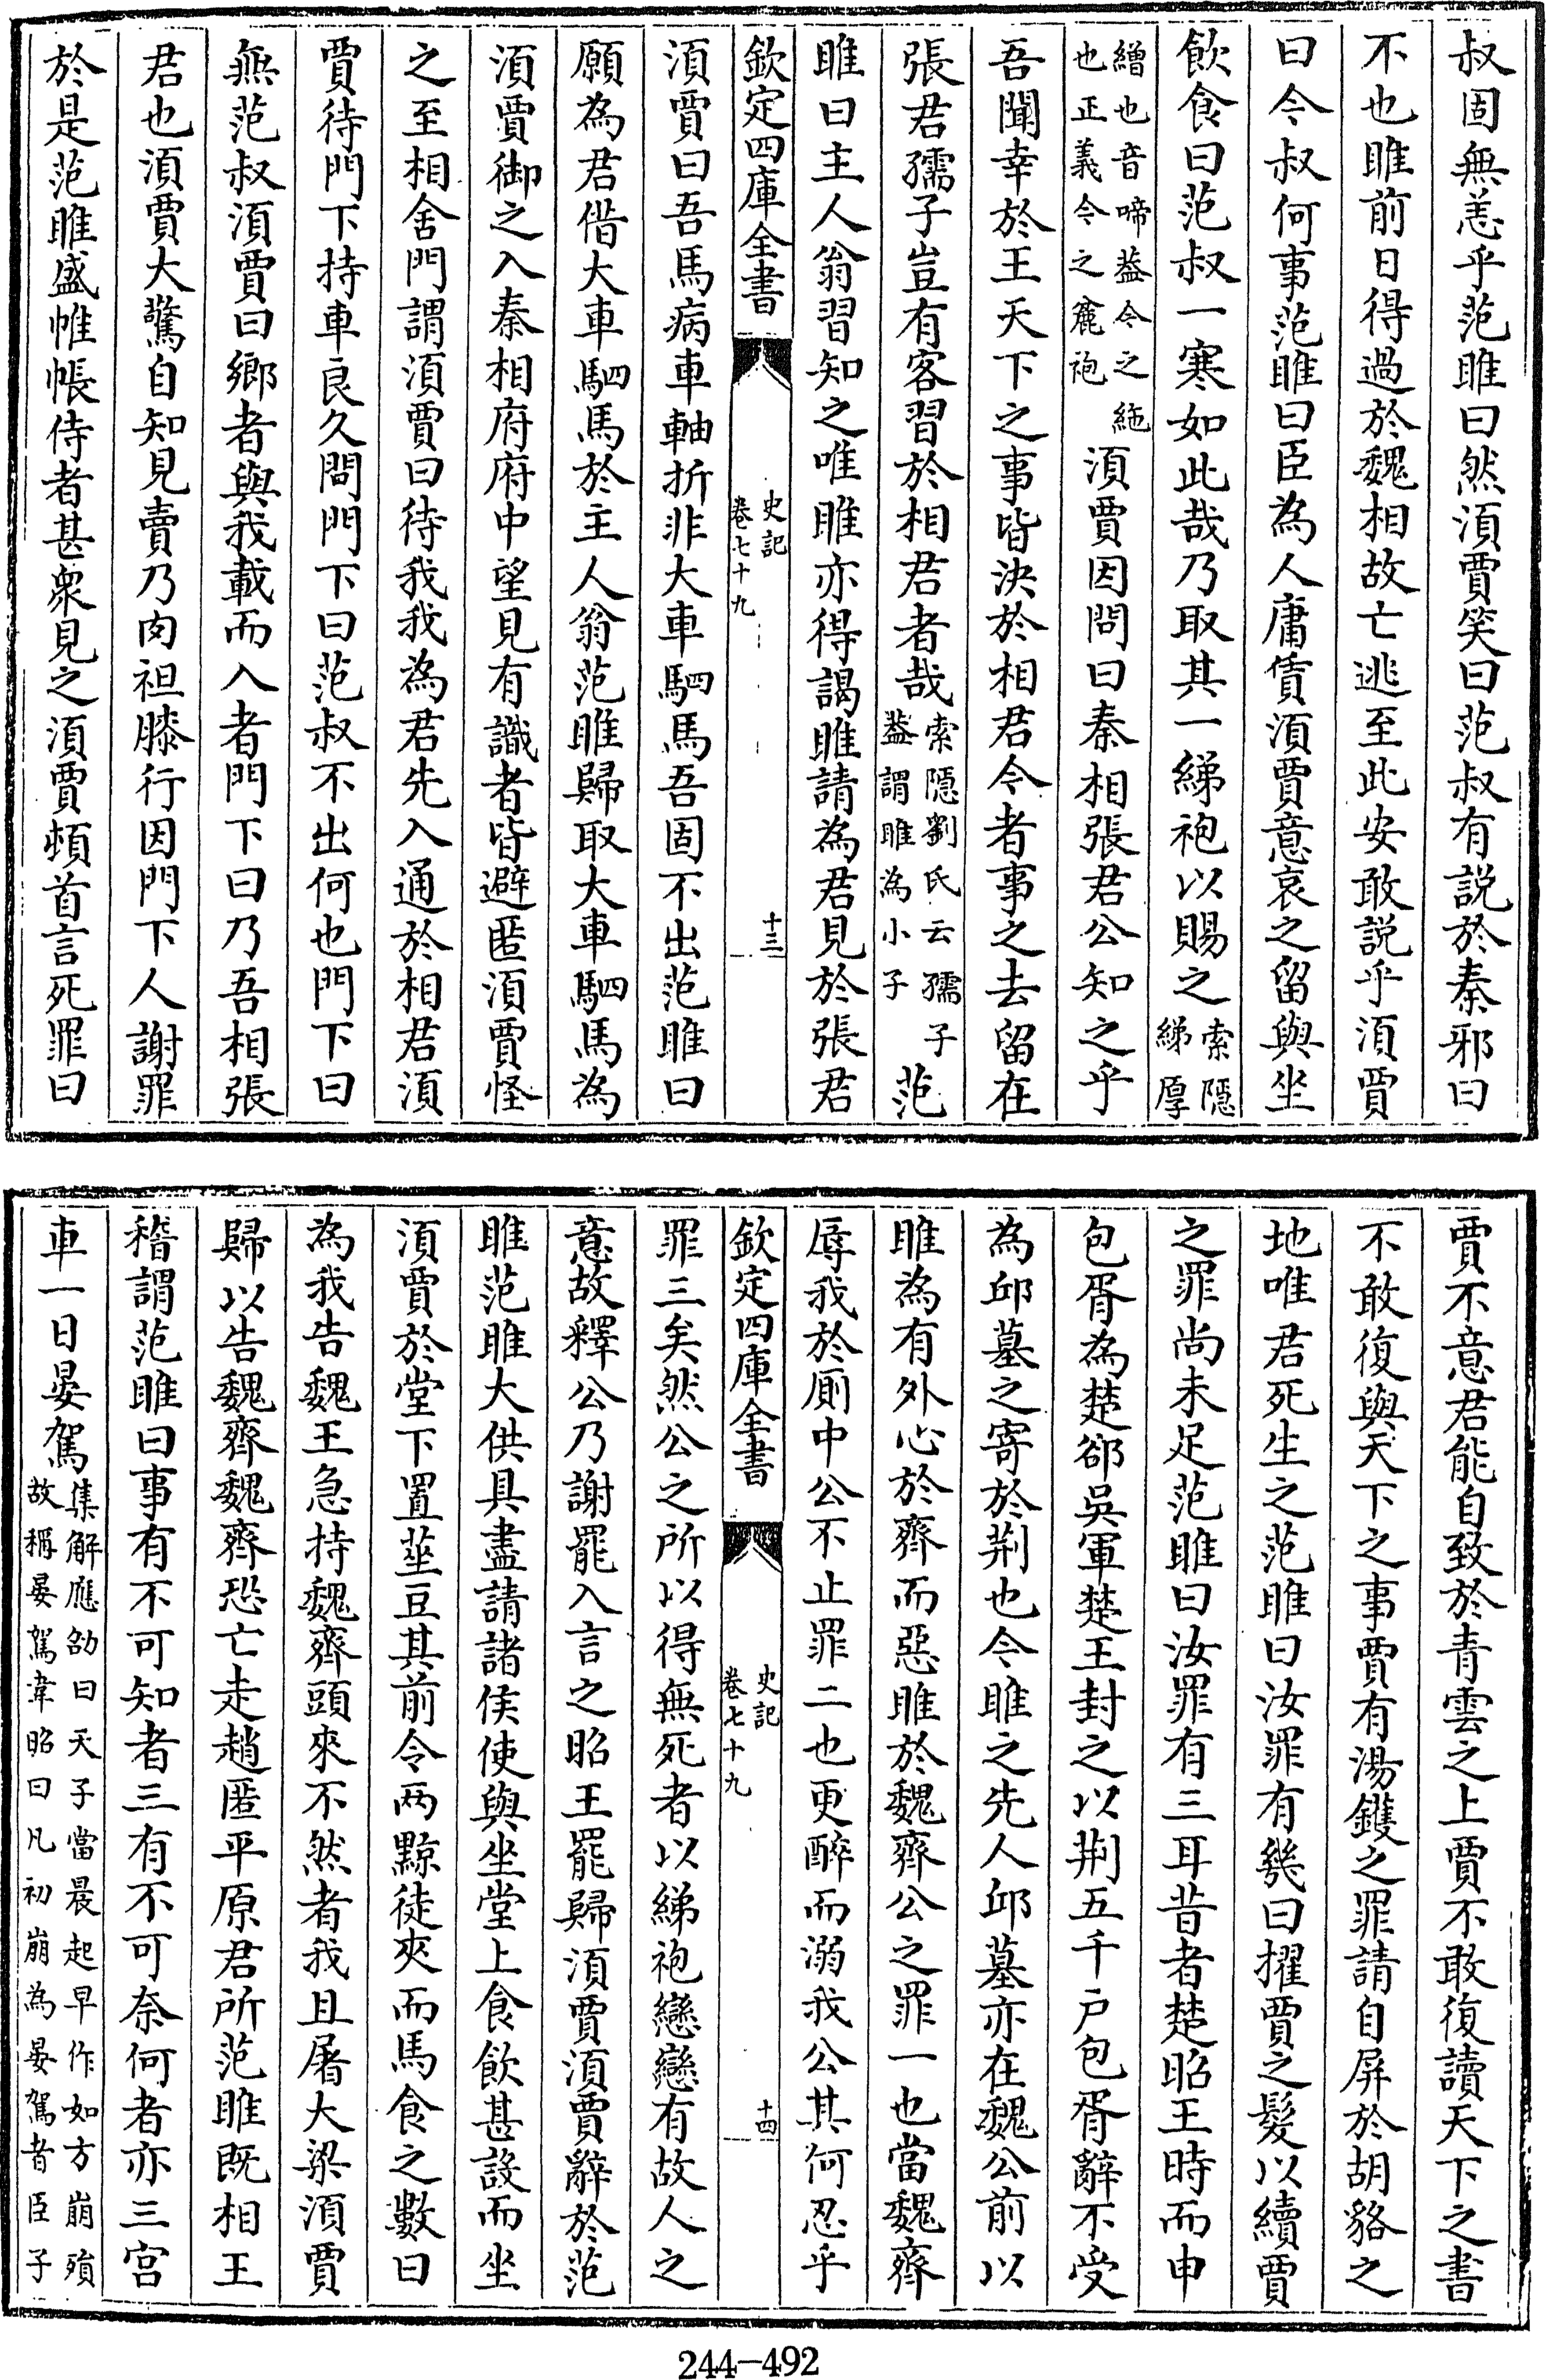 叔固無恙乎范雎曰然湏賈笑曰范叔有説於秦邪曰
不也雎前日得過於魏相故亡逃至此安敢説乎湏賈
曰今叔何事范雎曰臣為人庸賃湏賈意哀之留與坐
飲食曰范叔一寒如此哉乃取其一綈袍以賜之索隱
綈厚
繒也音啼葢今之絁
也正義今之麄袍
湏賈因問曰秦相張君公知之乎
吾聞幸於王天下之事皆決於相君今者事之去留在
張君孺子豈有客習於相君者哉索隱劉氏云孺子
葢謂雎為小子
范
雎曰主人翁習知之唯雎亦得謁雎請為君見於張君
欽定四庫全書
史記
卷七十九
十三
湏賈曰吾馬病車軸折非大車駟馬吾固不出范雎曰
願為君借大車駟馬於主人翁范雎歸取大車駟馬為
湏賈御之入秦相府府中望見有識者皆避匿湏賈怪
之至相舍門謂湏賈曰待我我為君先入通於相君湏
賈待門下持車良久問門下曰范叔不出何也門下曰
無范叔湏賈曰鄉者與我載而入者門下曰乃吾相張
君也湏賈大驚自知見賣乃肉袒膝行因門下人謝罪
於是范雎盛帷帳侍者甚衆見之湏賈頓首言死罪曰
賈不意君能自致於青雲之上賈不敢復讀天下之書
不敢復與天下之事賈有湯鑊之罪請自屏於胡貉之
地唯君死生之范雎曰汝罪有幾曰擢賈之髮以續賈
之罪尚未足范雎曰汝罪有三耳昔者楚昭王時而申
包胥為楚郤吳軍楚王封之以荆五千户包胥辭不受
為邱墓之寄於荆也今雎之先人邱墓亦在魏公前以
雎為有外心於齊而惡雎於魏齊公之罪一也當魏齊
辱我於厠中公不止罪二也更醉而溺我公其何忍乎
欽定四庫全書
史記
卷七十九
十四
罪三矣然公之所以得無死者以綈袍戀戀有故人之
意故釋公乃謝罷入言之昭王罷歸湏賈湏賈辭於范
雎范雎大供具盡請諸侯使與坐堂上食飲甚設而坐
湏賈於堂下置莝豆其前令两黥徒夾而馬食之數曰
為我告魏王急持魏齊頭來不然者我且屠大梁湏賈
歸以告魏齊魏齊恐亡走趙匿平原君所范雎既相王
稽謂范雎曰事有不可知者三有不可奈何者亦三宫
車一日晏駕集解應劭曰天子當晨起早作如方崩殞
故稱晏駕韋昭曰凡初崩為晏駕者臣子
244-492